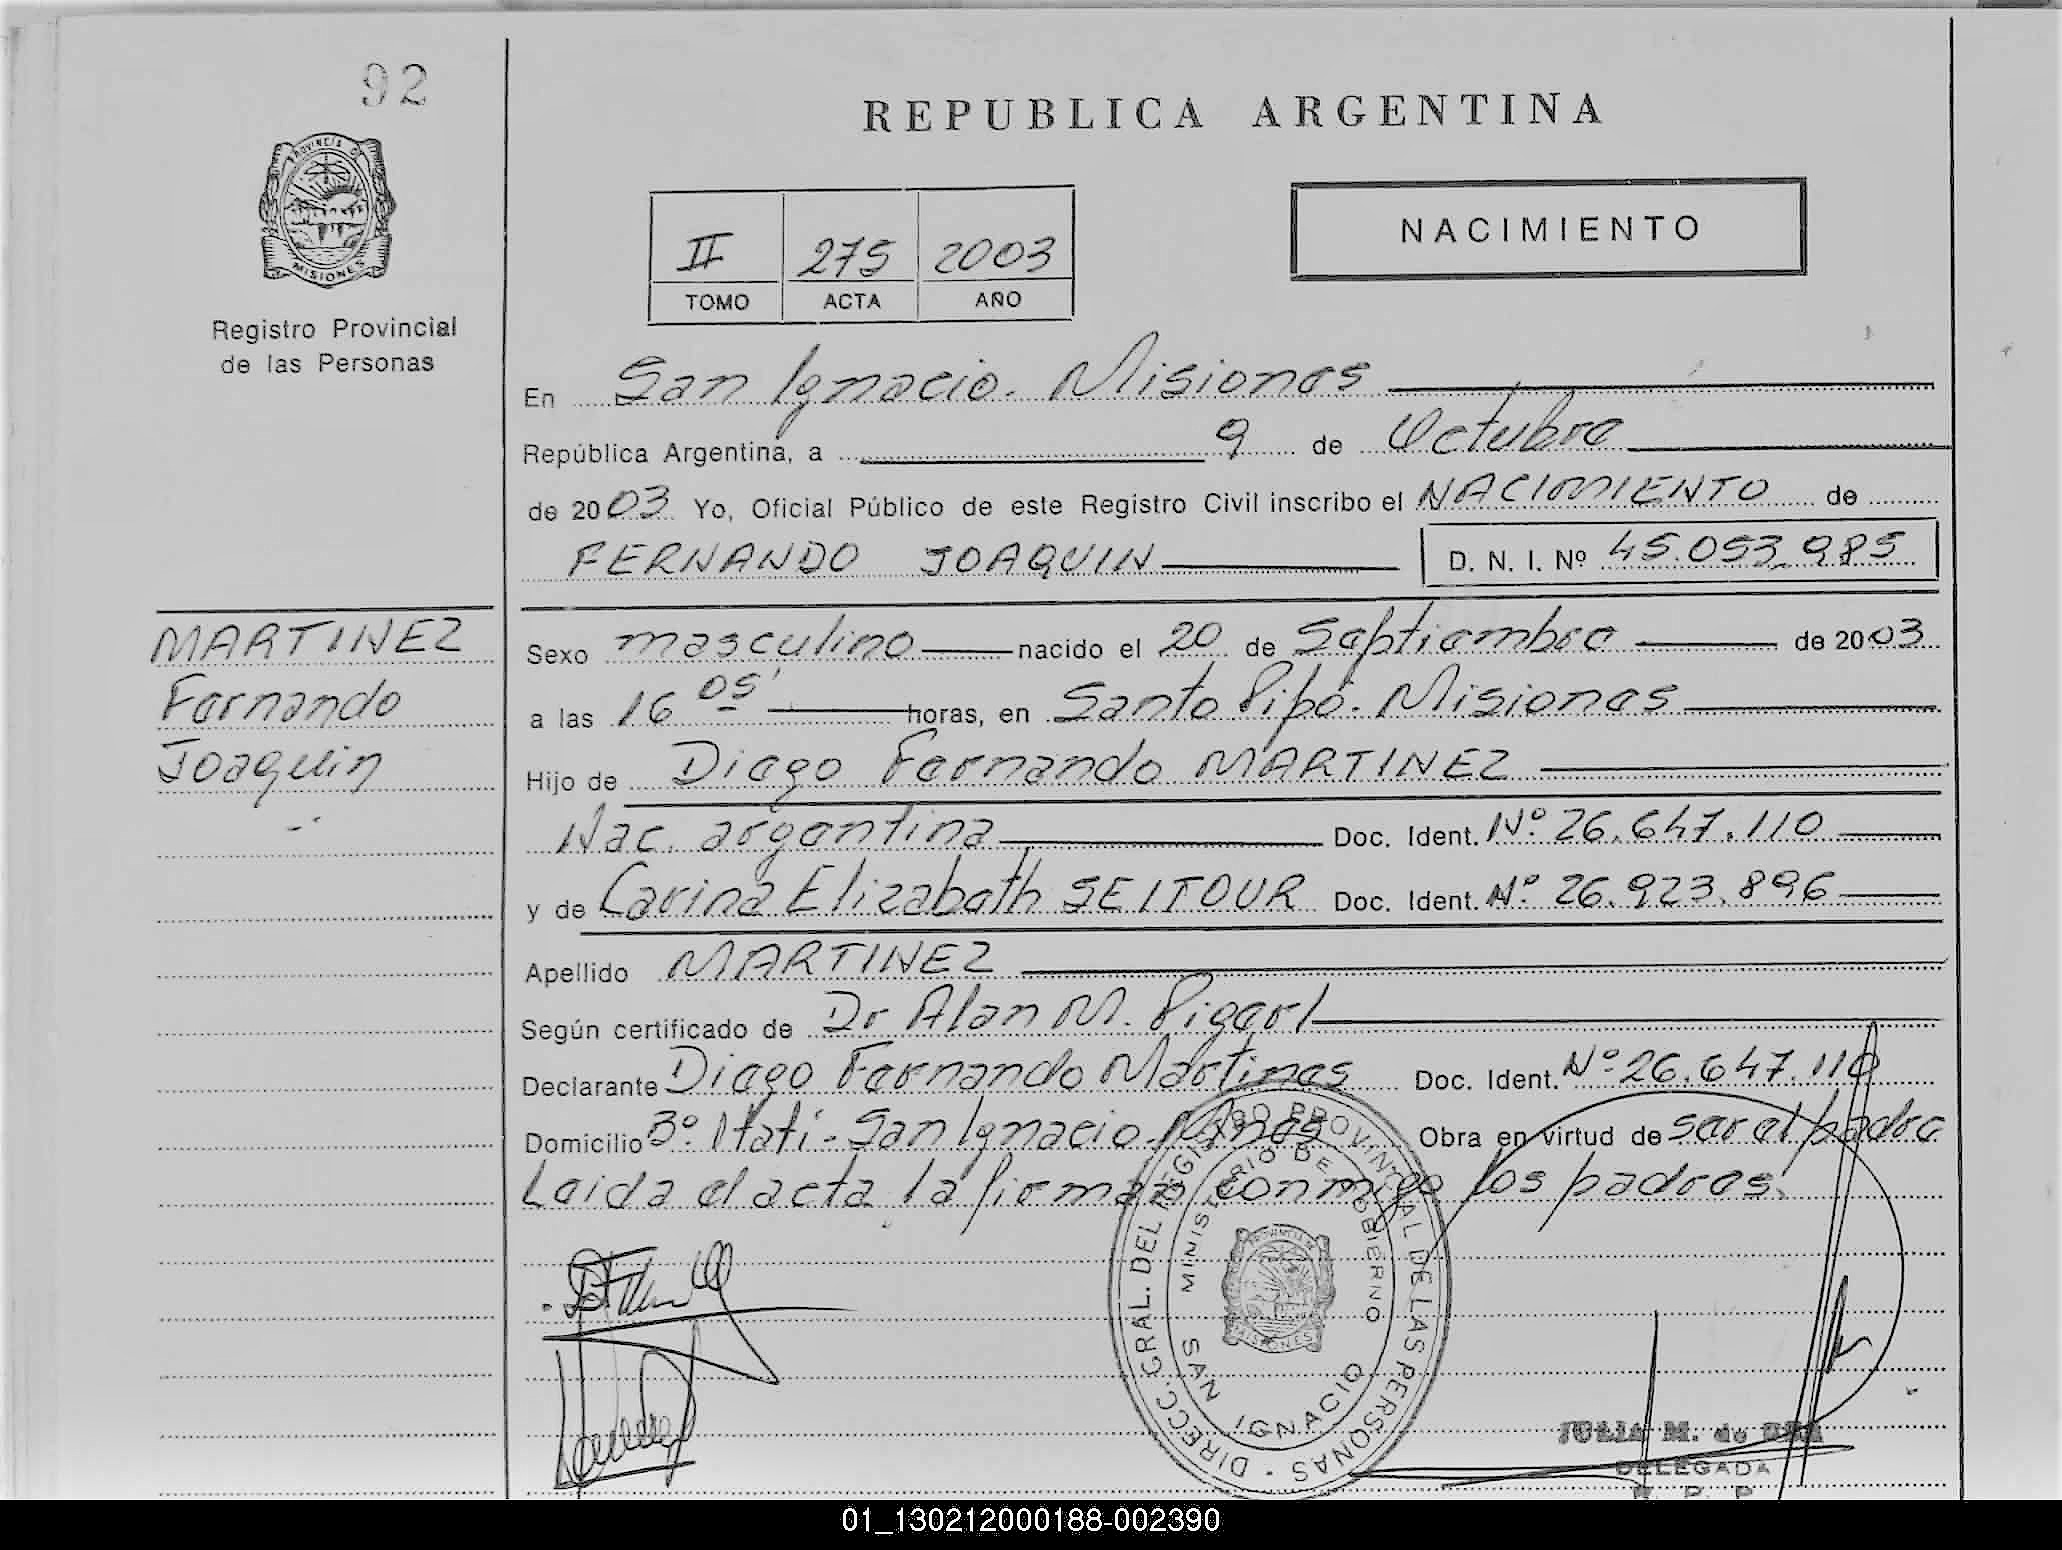 92
REPUBLICA ARGENTINA
PROVINCIA DE MISIONES
Registro Provincial
de las Personas
II 275 2003
TOMO ACTA AÑO
NACIMIENTO
En San Ignacio. Misiones
República Argentina, a 9 de Octubre
de 2003 Yo, Oficial Público de este Registro Civil inscribo el NACIMIENTO de
FERNANDO JOAQUIN D. N. I. Nº 45.053.985
MARTINEZ
Fernando
Joaquin
Sexo masculino nacido el 20 de Septiembre de 2003
a las 16 05' horas, en Santo Pipó. Misiones
Hijo de Diego Fernando MARTINEZ
Nac. argentina Doc. Ident. Nº 26.647.110
y de Carina Elizabeth SEITOUR Doc. Ident. Nº 26.923.896
Apellido MARTINEZ
Según certificado de Dr Alan M.
Declarante Diego Fernando Martines Doc. Ident. Nº 26.647.110
Domicilio Bº Itatí - San Ignacio. Mnes Obra en virtud de ser el padre
Leida el acta la firman conmigo los padres.
DIRECC. GRAL. DEL REGISTRO PROVINCIAL DE LAS PERSONAS
MINISTERIO DE GOBIERNO
MISIONES
SAN IGNACIO
JULIA M. de
DELEGADA
R. P. P.
01_130212000188-002390